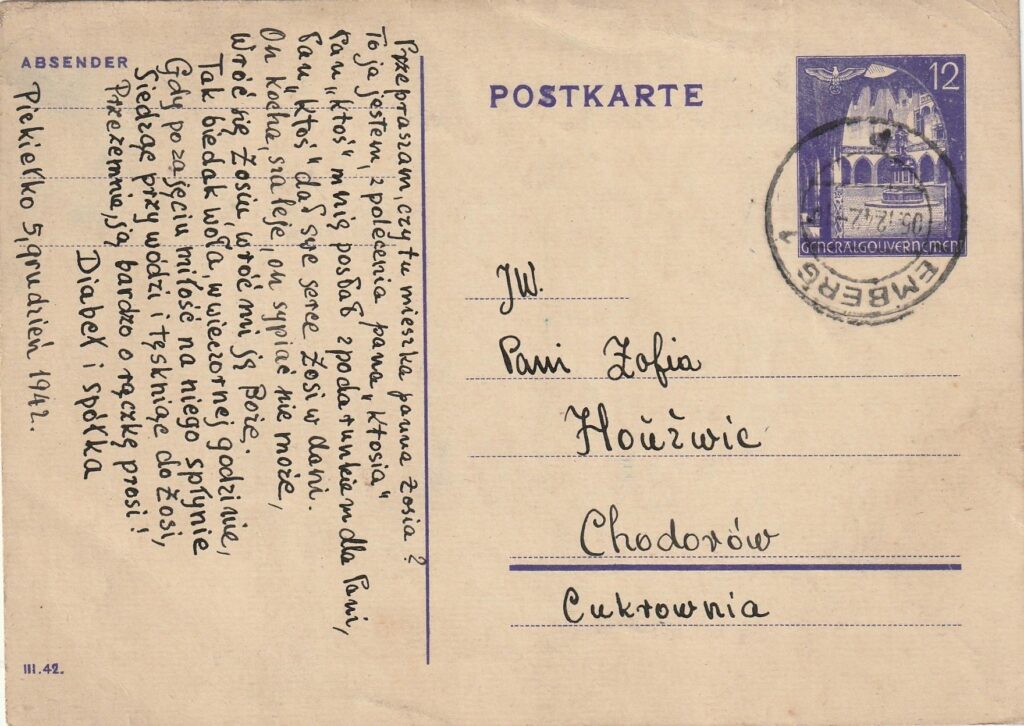 ABSENDER
Przepraszam, czy tu mieszka panna Zosia?
To ja jestem, z polecenia pana „Ktosia“
Pan „Ktoś“ mnię posłał z podarunkiem dla Pani,
Pan „Ktoś“ dał swe serce Zosi w dani.
On kocha, szaleje, on sypiać nie może,
Wróć się Zosiu, wróć mi ją Boże;
Tak biedak woła, w wieczornej godzinie,
Gdy po zajęciu miłość na niego spłynie
Siedząc przy wódzi i tęskniąc do Zosi,
Przezemnie, ją bardzo o rączkę prosi!
Diabeł i spółka
Piekiełko 5, grudzień 1942.
III.42.
POSTKARTE
12
GENERALGOUVERNEMENT
EMBERG 1
05.12.42
JW.
Pani Zofia
Chodorów
Cukrownia